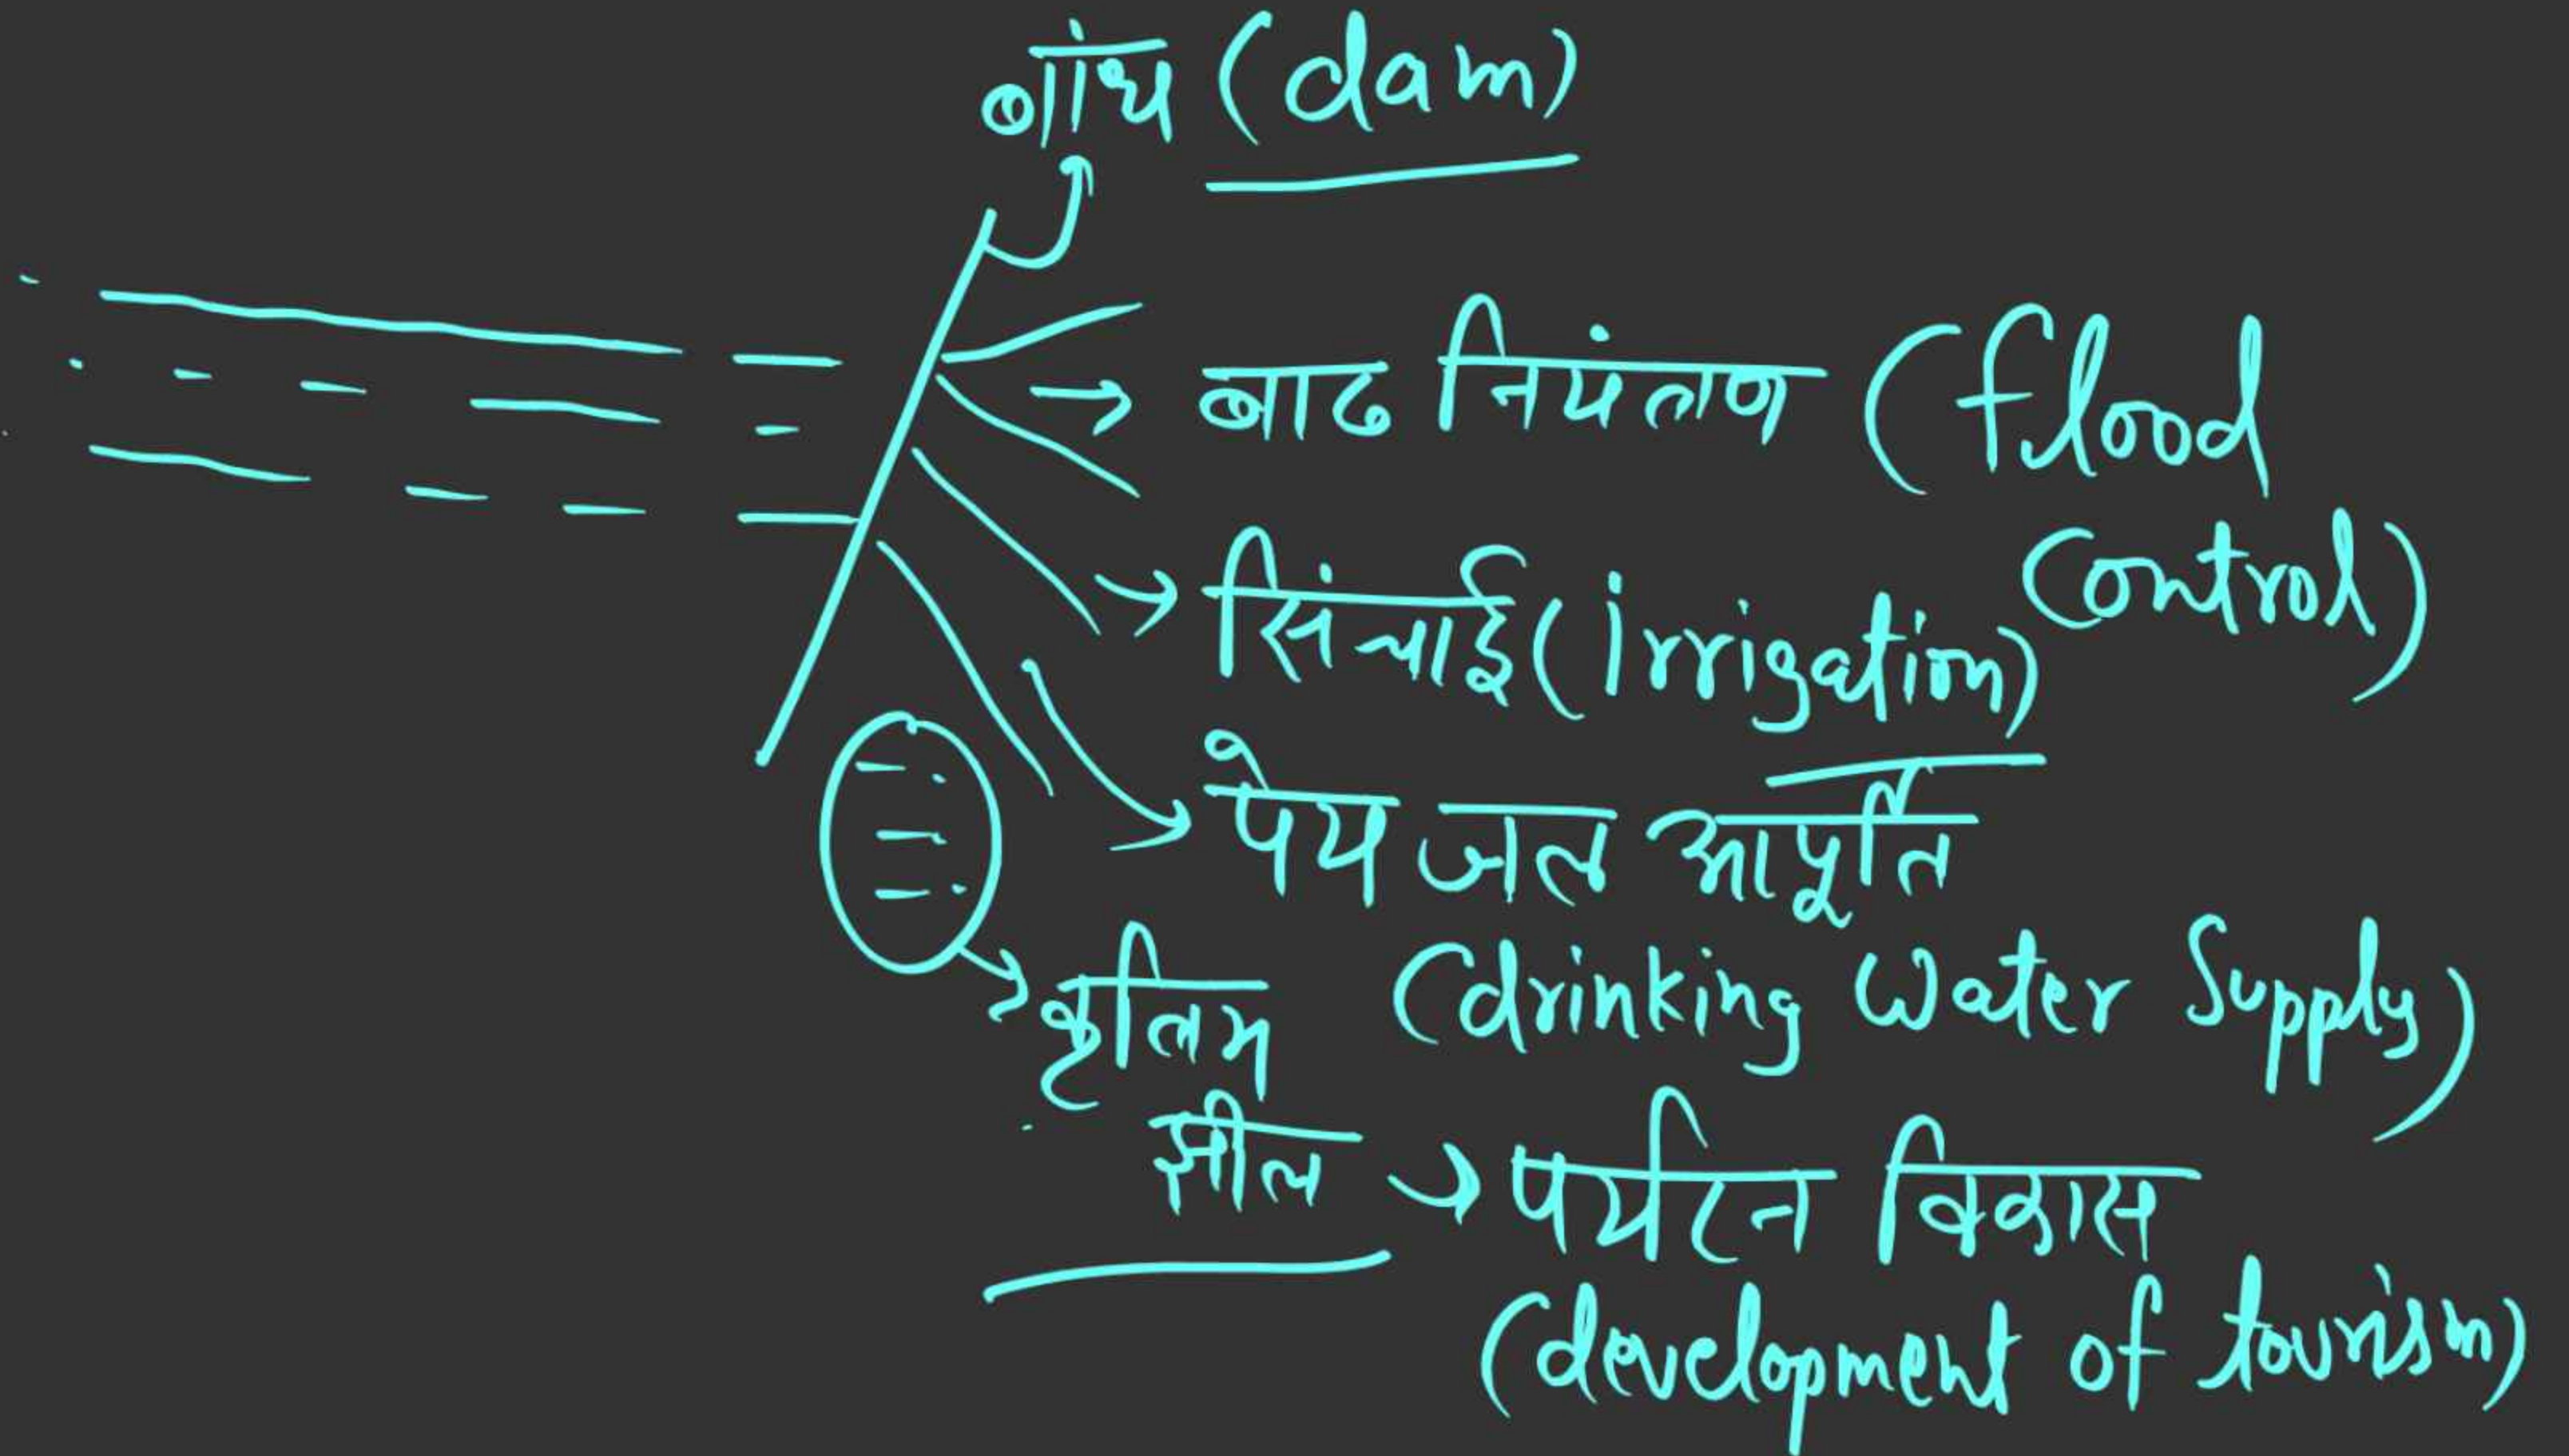 बांध (dam)
बाढ नियंत्रण (flood
control)
सिंचाई (irrigation)
पेय जल आपूर्ति
(drinking water supply)
कृत्रिम
झील → पर्यटन विकास
(development of tourism)